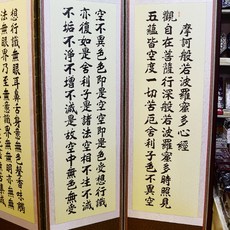 摩訶般若波羅蜜多心經
觀自在菩薩行深般若波羅蜜多時照見
五蘊皆空度一切苦厄舍利子色不異空
空不異色色即是空空即是色受想行識
亦復如是舍利子是諸法空相不生不滅
不垢不淨不增不減是故空中無色無受
想行識無眼耳鼻舌身意無色聲香味觸
法無眼界乃至無意識界無無明亦無無